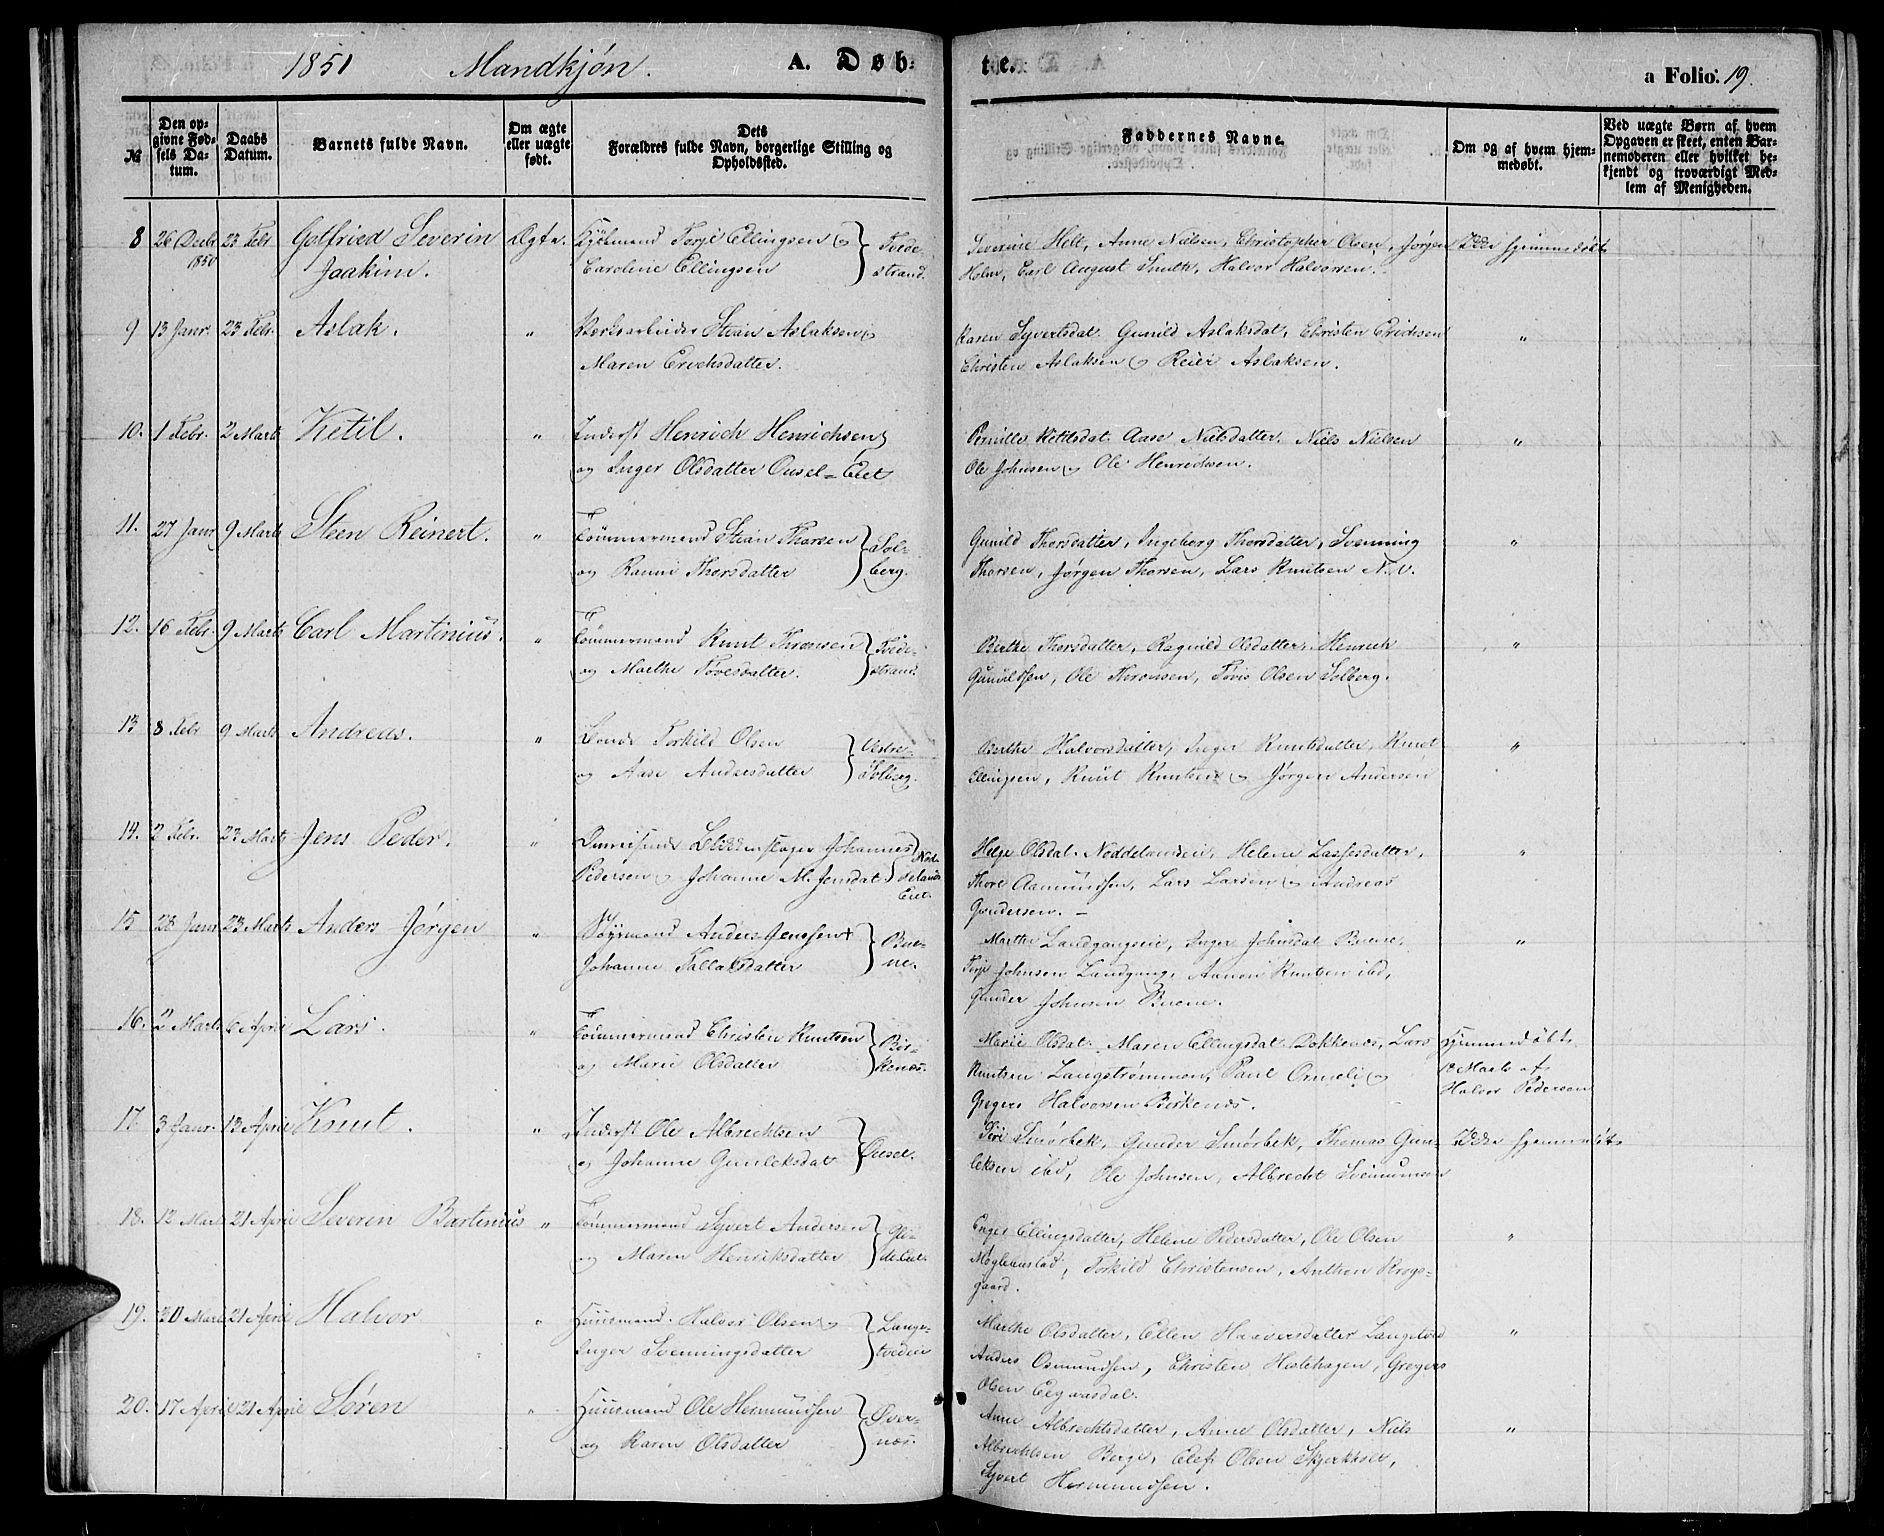 1851 Mandkjøn. A. Døb-
te.
a Folio: 19.
№
Den op-
givne Fød-
sels Da-
tum.
Daabs
Datum.
Barnets fulde Navn.
Om ægte
eller uægte
født.
Dets
Forældres fulde Navn, borgerlige Stilling og
Opholdssted.
Faddernes Navne.
Om og af hvem hjem-
medøbt.
Ved uægte Børn af hvem
Opgaven er skeet, enten Bar-
nemoderen eller hvilket be-
kjendt og troværdigt Med-
lem af Menigheden.
8 26 Decbr 1850 23 Febr Gotfried Severin Joakim. Ægte.
Terje Ellingsen
Caroline Ellingsen
Tvede-
strand.
Severine Hell, Anne Nielsen, Christopher Olsen, Jørgen
Holm, Carl August Smith, Halvor Halvorsen.
hjemmedøbt
9 13 Janr. 23 Febr. Aslak. "
Stian Aslaksen
Maren Erichsdatter.
Karen Syvertsdat. Gunild Aslaksdat, Christen Erichsen
Christen Aslaksen og Reier Aslaksen.
"
10. 1 Febr. 2 Marts Ketil. "
Inderst Henrich Henrichsen
og Inger Olsdatter Ousel=Eiet
Pernille Ketilsdat. Aase Nielsdatter. Niels Nielsen
Ole Johnsen og Ole Henrichsen.
"
11. 27 Janr 9 Marts Steen Reinert. "
Tømmermand Stian Thorsen
og Ranni Thorsdatter
Sol-
berg.
Gunild Thorsdatter, Ingeborg Thorsdatter, Svenning
Thorsen, Jørgen Thorsen, Lars Knutsen N.V.
"
12. 16 Febr. 9 Marts Carl Martinius. "
Tømmermand Knut Thronsen
og Marthe Tøvesdatter.
Tvede-
strand.
Berthe Thorsdatter, Ragnild Olsdatter, Henrich
Gunuldsen, Ole Thronsen, Tøvis Olsen Solberg.
"
13 8 Febr 9 Marts Andreas. "
Torkild Olsen
og Aase Andersdatter
Vestre-
Solberg.
Berthe Halvorsdatter, Inger Knutsdatter, Knut
Ellingsen, Knut Knutsen og Jørgen Andersen
"
14. 2 Febr. 23 Marts Jens Peder. "
Johannes
Pedersen og Johanne M. Jensdat.
Nod-
delands
Eiet.
Helge Olsdat. Noddelandsei, Helene Lassesdatter,
Thore Aamundsen, Lars Larsen og Andreas
Gundersen. –
"
15 28 Janr 23 Marts Anders Jørgen "
Anders Jenssen
Johanne Tallaksdatter
Bue-
ne.
Marthe Landgangsei, Inger Johnsdat Buene,
Terje Johnsen Landgang, Aanon Knutsen ibd,
Gunder Johnsen Buene.
"
16. 2 Marts 6 April Lars. "
Tømmermand Christen Knutsen
og Marie Olsdatter
Bir-
kenæs.
Marie Olsdat. Maren Ellingsdat. Dokkenæs, Lars
Knutsen Langstrømmen, Paul Ormeli og
Gregers Halvorsen Birkenæs.
Hjemmedøbt
Marts af
Halvor Pedersen
17. 3 Janr. 13 April Knut. "
Inderst Ole Albrechtsen
og Johanne Gunleksdat
Ousel.
Siri Smørbek, Gunder Smørbek, Thomas Gun-
leksen ibd, Ole Johnsen, Albrecht Sveinumsen
18. 12 Marts 21 April Severin Bartinius "
Tømmermand Syvert Andersen
og Maren Henriksdatter
Inger Ellingsdatter, Helene Pedersdatter, Ole Olsen
Møglestad, Torkild Christensen, Anthon Krogs-
gaard.
"
19. 30 Marts 21 April Halvor "
Huusmand. Halvor Olsen og
Inger Svenningsdatter
Lange-
tveden
Marthe Olsdatter, Ellen Haaversdatter Langetved
Anders Osmundsen, Christen Hestehagen, Gregers
Olsen Eegaasdal.
"
20. 17 April 21 April Søren "
Huusmand Ole Hermundsen
og Karen Olsdatter
Øver-
næs.
Anne Albrechtsdatter, Anne Olsdatter, Niels
Albrechtsen Berge, Elef Olsen Skjerkholt,
Syvert Hermundsen.
"